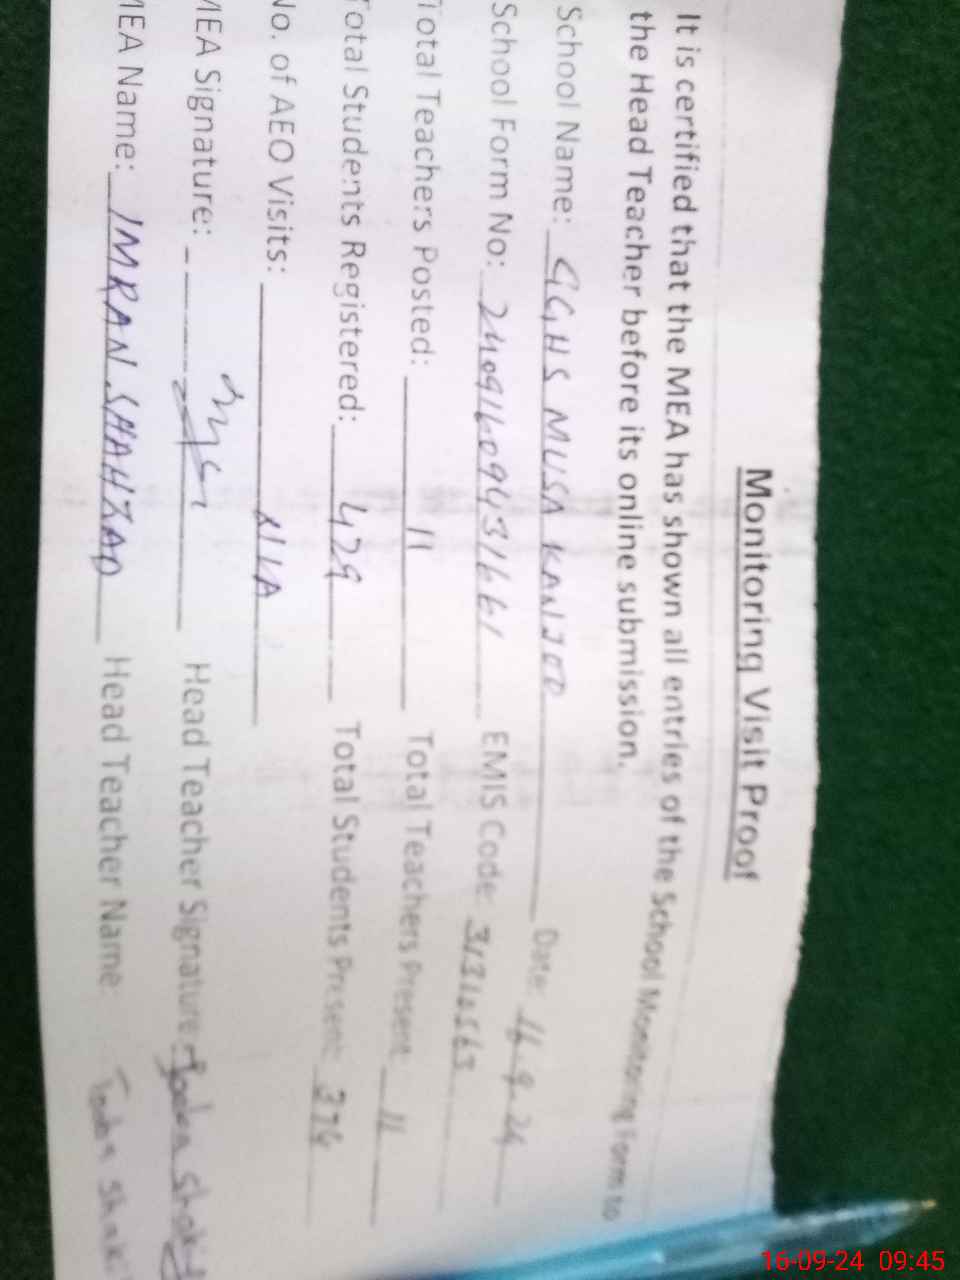 Monitoring Visit Proof
It is certified that the MEA has shown all entries of the School Monitoring Form to
the Head Teacher before its online submission.
School Name: GGHS MUSA KANJOO Date: 16-9-24
School Form No: 24091609431661 EMIS Code: 31310565
Total Teachers Posted: 11 Total Teachers Present 11
Total Students Registered: 429 Total Students Present: 376
No. of AEO Visits: NIA
MEA Signature: Head Teacher Signature:
MEA Name: IMRAN SHAHZAD Head Teacher Name:
16-09-24 09:45